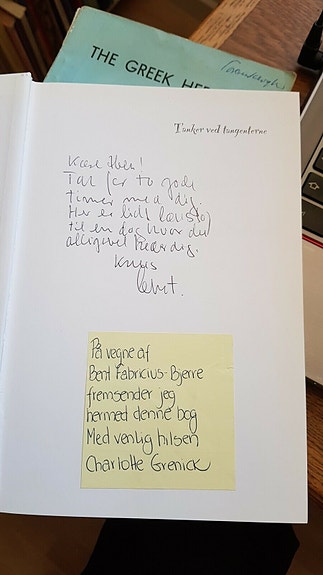 THE GREEK HE
Tanker ved tangenterne
Kære
Tak for to gode
timer med dig.
Her er lidt læsestof
til en dag hvor du
alligevel
Knus
Bent.
På vegne af
Bent Fabricius-Bjerre
fremsender jeg
hermed denne bog
Med venlig hilsen
Charlotte Grenick